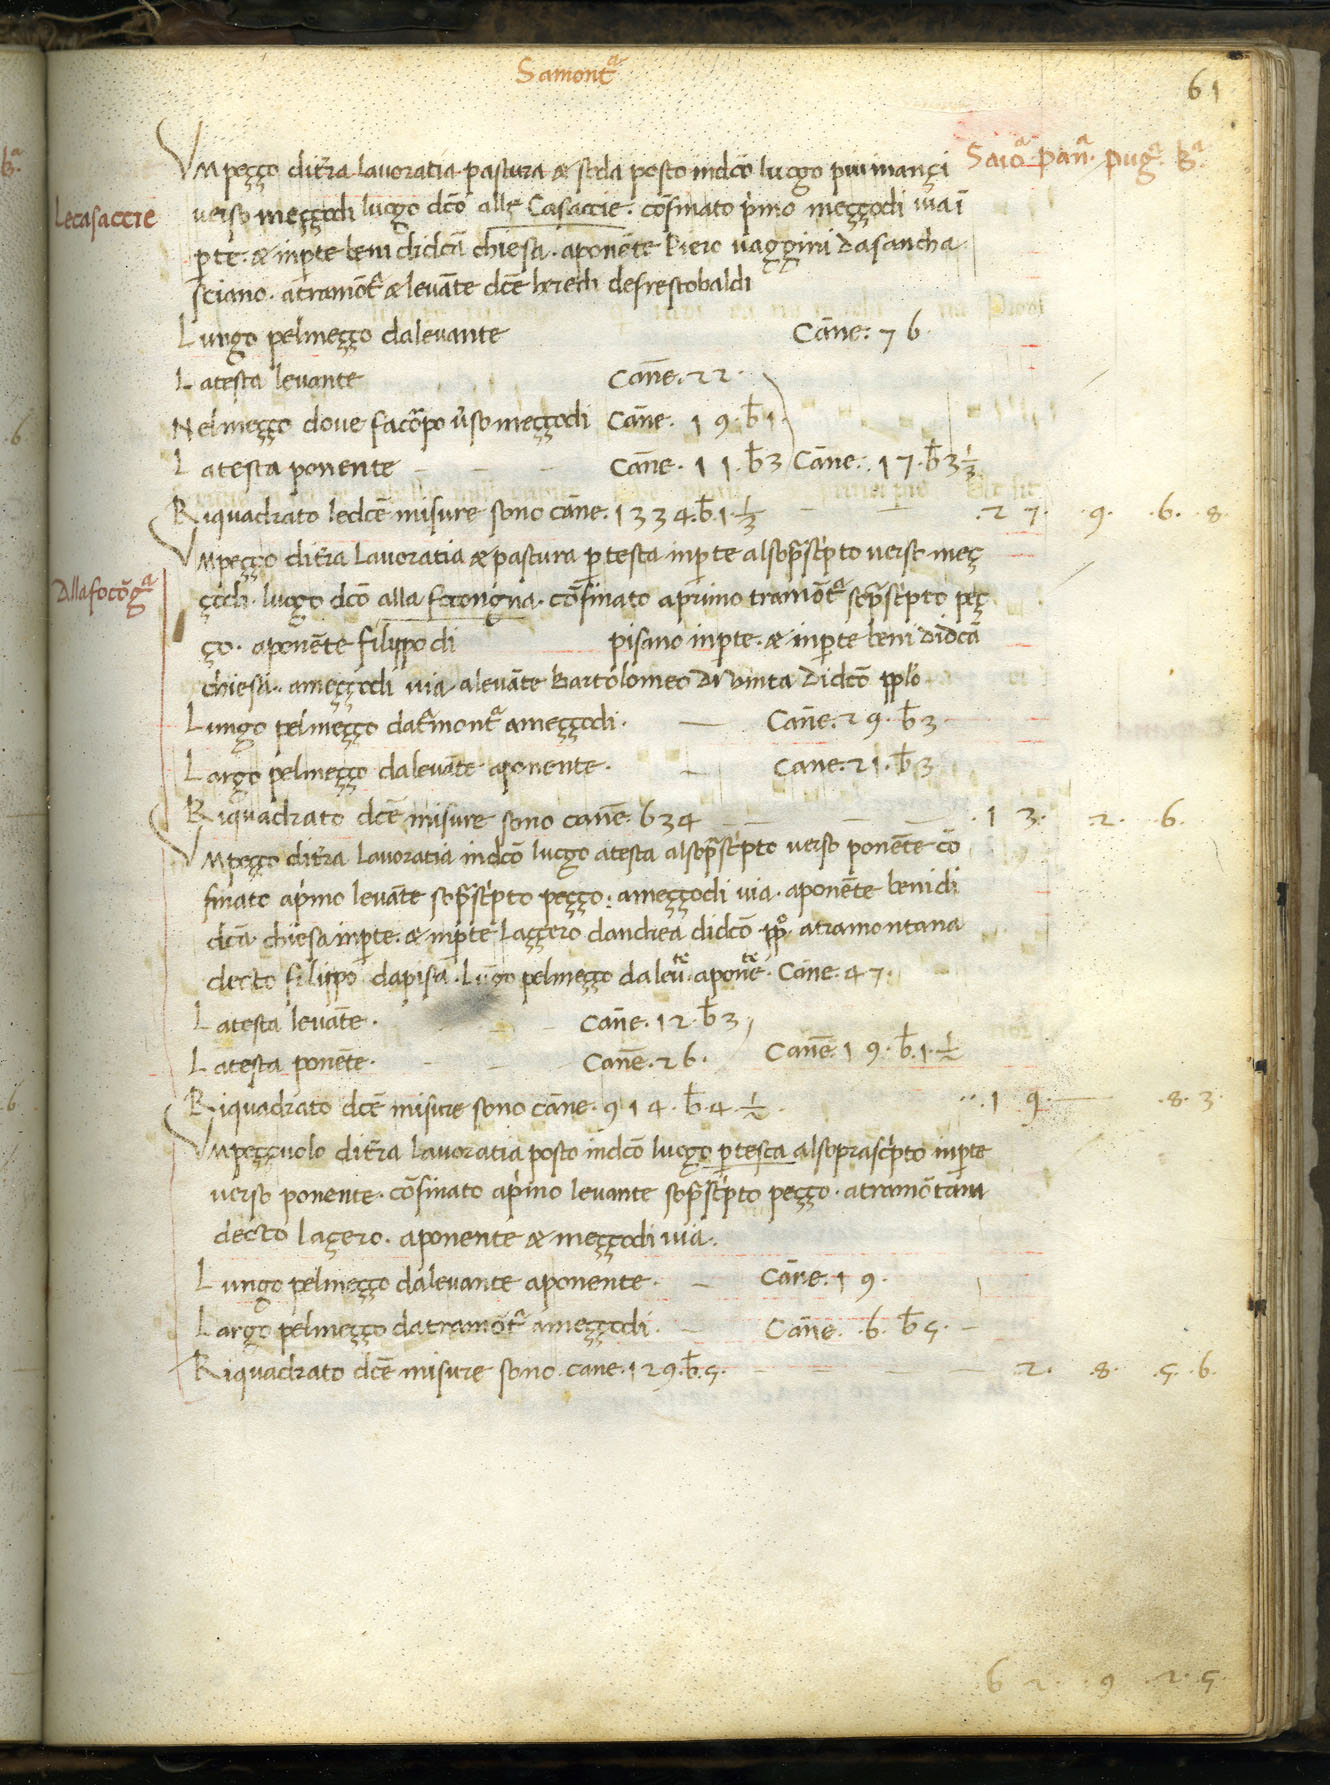 Samontª
61
Saioª panª pugª bª
Vm peçço dit̃ra lavoratia pastura & soda posto in dcõ luogo piu inançi
Le casaccie
verso meççodi luogo dcõ alle Casaccie. cõfinato p̃mo meççodi via ĩ
p̱te. & inp̱te beni di dcã chiesa. a ponẽte Piero vaggini da sancha
sciano. a tramõtª & levãte dcẽ heredi de frescobaldi
Lungo pel meçço da levante Cãne. 76.
La testa levante Cãne. 22.
Nel meçço dove fa cãpo ṽso meççodi Cãne. 19. b̃ 1.
La testa ponente Cãne. 11. b̃ 3 Cãne. 17. b̃ 3 1/3
Riquadrato le dcẽ misure sono cãne. 1334. b̃. 1. 1/3 .27. .9. .6. .8.
Vm peçço dit̃ra lavoratia & pastura p̱ testa inp̱te al sop̃scp̃to verso meç
Alla focõgª
çodi. luogo dcõ alla focongna. cõfinato a primo tramõtª sop̃scp̃to peç
ço. a ponẽte filippo di pisano inp̱te. & inp̱te beni di dcã
chiesa. a meççodi via. a levãte Bartolomeo di vinta di dcõ pplõ
Lungo pel meçço da t̃montª a meççodi. Cãne. 29. b̃ 3
Largo pel meçço da levãte a ponente. Cane. 21. b̃ 3
Riquadrato dcẽ misure sono canẽ 634 .13. 2. .6.
Vm peçço dit̃ra lavoratia in dcõ luogo a testa al sop̃scp̃to verso ponẽte cõ
finato a p̃mo levãte sop̃scp̃to peçço. a meççodi via. a ponẽte beni di
dcã chiesa inp̱te. & inp̱te Laggero dandrea di dcõ ppº. a tramontana
decto filippo da pisã. Lũgo pel meçço da levᵗᵉ. a ponᵗᵉ. Cãne. 47.
La testa levãte. Cãne. 12. b̃ 3
La testa ponẽte. Canẽ. 26. Canẽ. 19. b̃. 1. 1/2
Riquadrato dcẽ misure sono cãne. 914. b̃. 4. 1/2. .19. — .8. 3.
Vm peççuolo dit̃ra lavoratia posto in dcõ luogo p̱ testa al soprascp̃to inp̱te
verso ponente. cõfinato a p̃mo levante sop̃scp̃to peçço. a tramõtana
decto lagero. a ponente & meççodi via.
Lungo pel meçço da levante a ponente. Cãne. 19.
Largo pel meçço da tramõtª a meççodi. Cãne. .6. b̃ 5.
Riquadrato dcẽ misure sono cane. 129. b̃. 5. .2. .8. .5. .6.
62. .9 .2. 5.